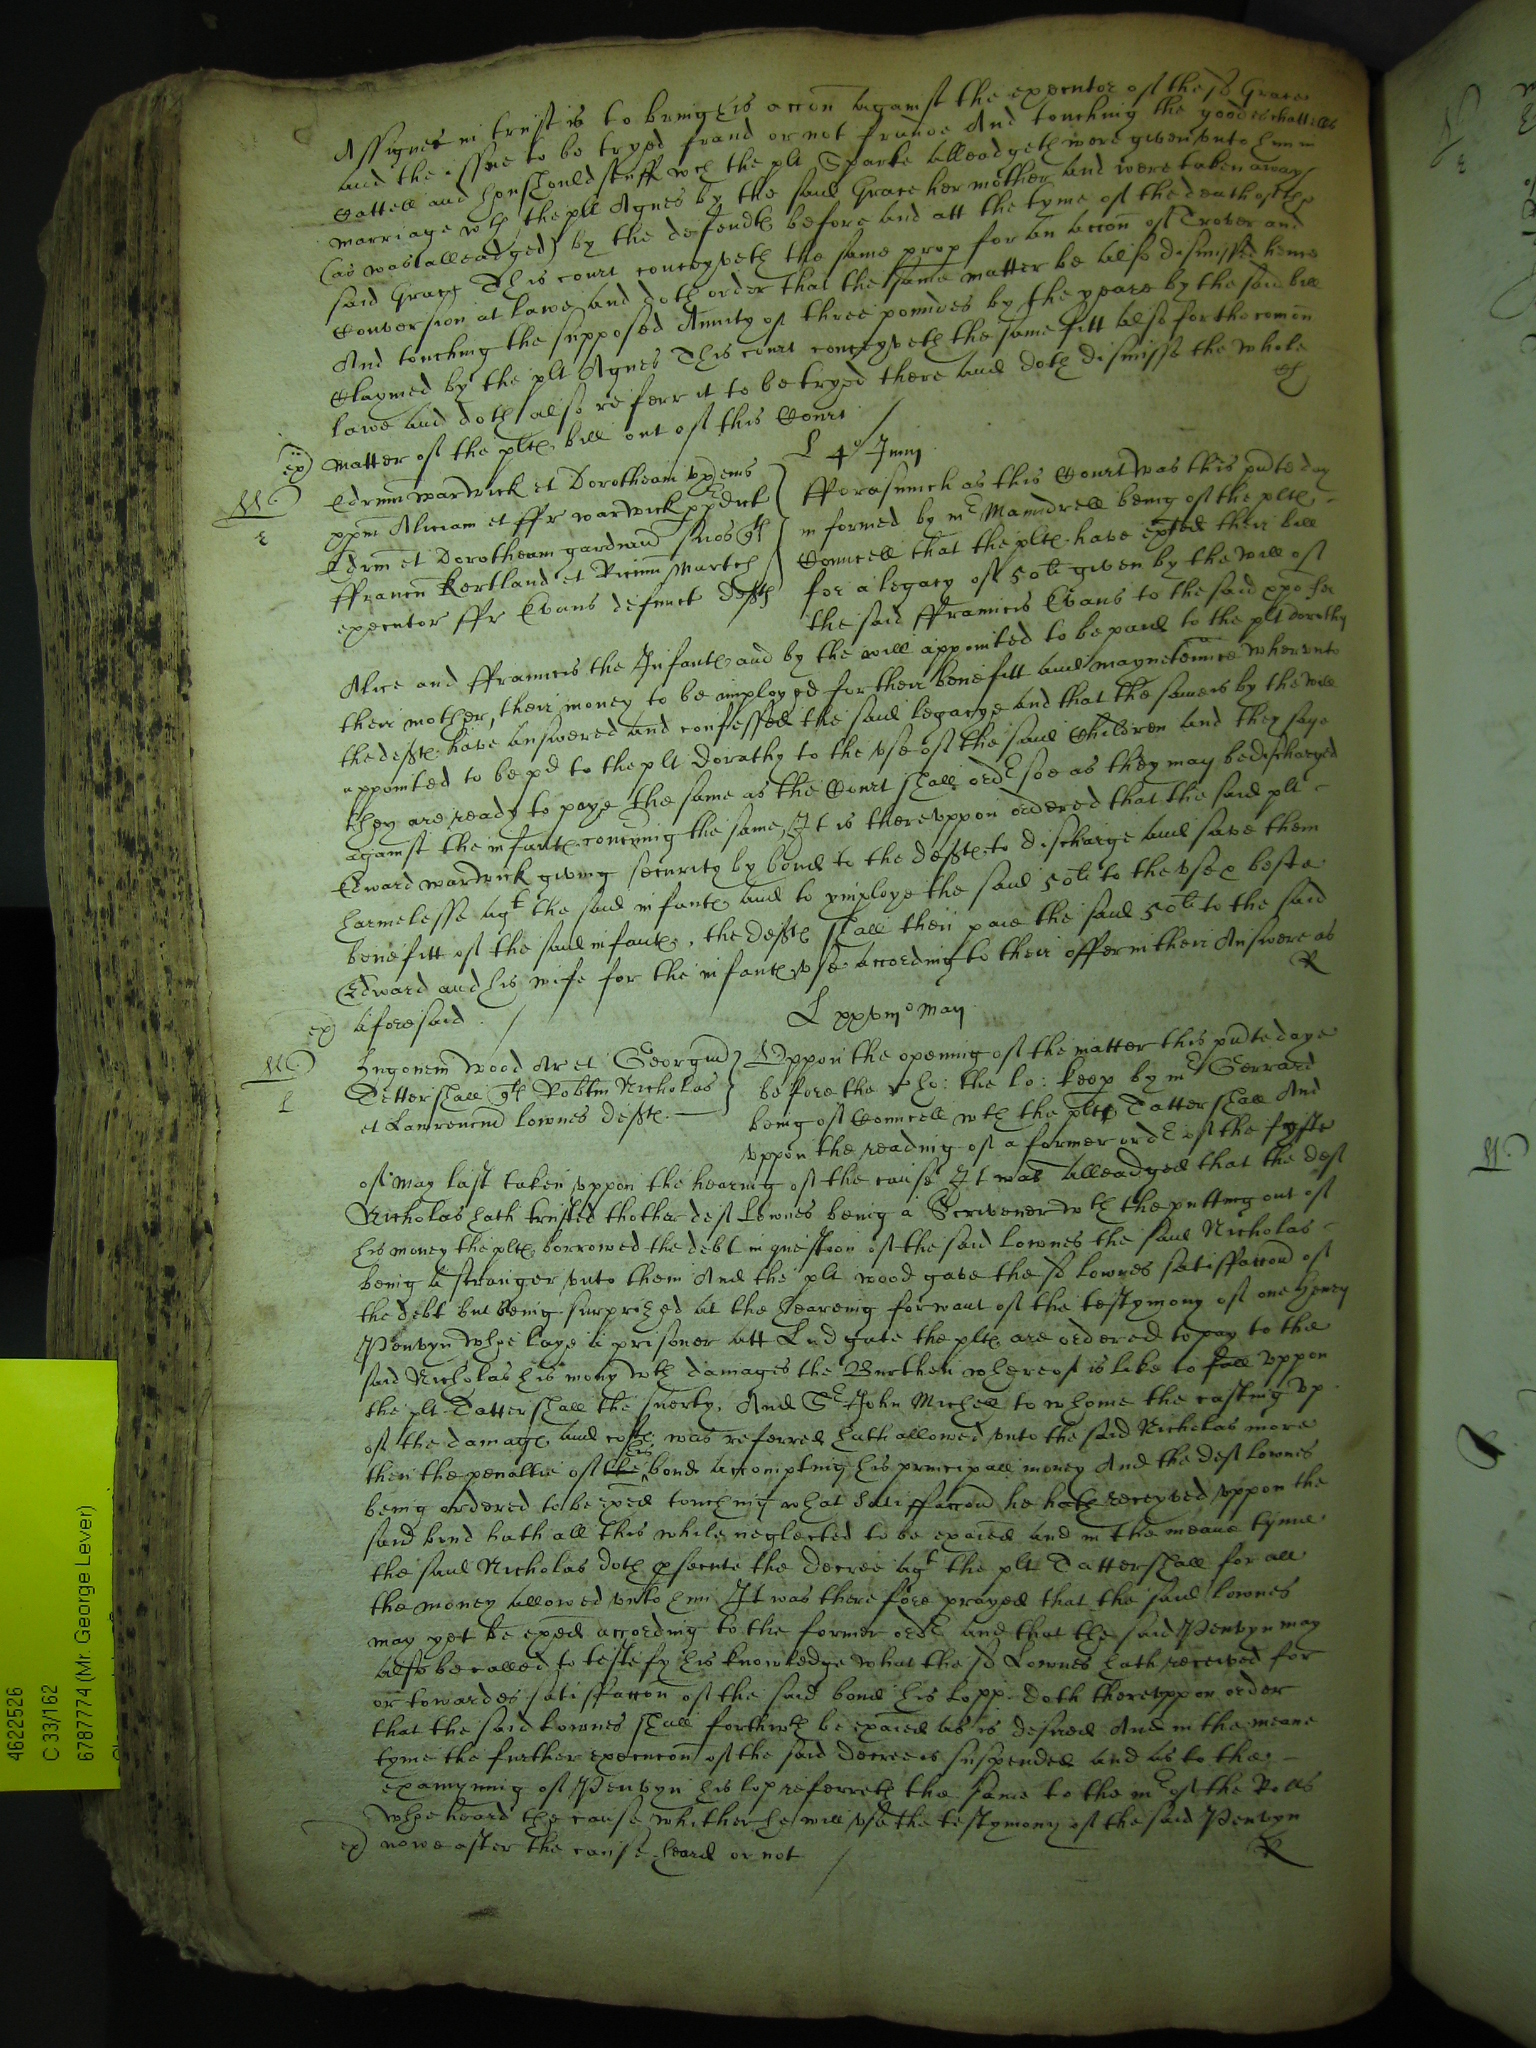 Assignes in trust is to bring his accon against the executor of the sd Grace
and the issue to be tryed fraud or not fraude And touching the goodes chattells
Cattell and houshould stuff wch the plt Sparke alleadgeth were given vnto him in
marriage wth the plt Agnes by the said Grace her mother and were taken away
(as was alleadged) by the defendts before and att the tyme of the death of the
said Grace This court conceyveth the same prop for an accon of Trover and
Conversion at lawe and doth order that the same matter be also dismissed hence
And touching the supposed Anuity of three poundes by the yeare by the said bill
Claymed by the plt Agnes This court conceyveth the same fitt also for the comon
lawe and doth also referr it to be tryed there and doth dismisse the whole
matter of the plts bill out of this Court
ex)
L 4o Junij
Edrum Warwick et Dorotheam vxem eius
ppm Aliciam et ffr Warwick p pdict
Edrm et Dorotheam gardian suos qts
ffrancu Kertland et Ricium March
executor ffr Evans defunct defts
fforasmuch as this Court was this pnte day
informed by mr Maundrell being of the plts
Councell that the plts have exhted their bill
for a legacy of 50li given by the will of
the said ffrauncis Evans to the said
Alice and ffrauncis the Infants and by the will appointed to be paid to the plt Dorothy
their mother, their money to be imployed for their benefitt and mayntenance wherunto
the defts have answered and confessed the said legacye and that the same is by the will
appointed to be pd to the plt Dorathy to the vse of the said Children and they saye
they are ready to paye the same as the Court shall ordr soe as they may be discharged
against the infants concrning the same, It is therevppon ordered that the said plt
Edward Warwick giving security by bond to the defts to discharge and save them
harmelesse agt the said infants and to ymploye the said 50li to the vse & beste
benefitt of the said infants, the defts shall then paie the said 50li to the said
Edward and his wife for the infants vse according to their offer in their Answere as
aforesaid
ex)
R
L xxvmo Maij
Hugonem Wood Ar et Georgiu
Tattershall qts Robtm Nicholas
et Lawrenciu Lownes defts
Vppon the opening of the matter this pnte daye
before the r: ho: the lo: keep by mr Gerrard
being of Councell wth the plts Tattershall And
vppon the reading of a former ordr of the fyfte
of May last taken vppon the hearing of the cause It was alleadged that the deft
Nicholas hath trusted thother deft Lownes being a Scrivener wth the putting out of
his money the plts borrowed the debt in question of the said Lownes the said Nicholas
being a stranger vnto them And the plt Wood gave the sd Lownes satisffaccon of
the debt but being surprized at the heareing for want of the testymony of one Henry
Penvyn whoe laye a prisoner att Ludgate the plts are ordered to pay to the
said Nicholas his mony wth damages the Burthen whereof is like to fall vppon
the plt Tattershall the suerty, And Sr John Michell to whome the casting vp
of the damags and costs was referred hath allowed vnto the said Nicholas more
then the penaltie of the his bond accompting his principall money And the deft Lownes
being ordered to be exed touching what satisffaccon he hath receyved vppon the
said bond hath all this while neglected to be exaied and in the meane tyme
the said Nicholas doth psecute the decree agt the plt Tattershall for all
the money allowed vnto him It was therefore prayed that the said Lownes
may yet be exed according to the former ordr and that the said Penvyn may
also be called to testefy his knowledge what the sd Lownes hath received for
or towardes satisffaccon of the said bond his lopp doth therevppon order
that the said Lownes shall forthwth be exaied as is desired And in the meane
tyme the further execucon of the said decree is suspended and as to the
examyning of Penvyn his lop referreth the same to the mr of the Rolls
whoe heard the cause whither he will vse the testymony of the said Penvyn
nowe after the cause heard or not
ex)
R
4622526
C 33/162
6787774 (Mr. George Lever)